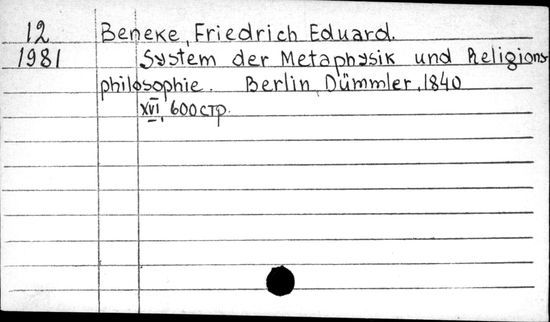 12 Beneke, Friedrich Eduard.
1981 System der Metaphysik und Religions-
philosophie. Berlin, Dümmler, 1840
XVI, 600 стр.